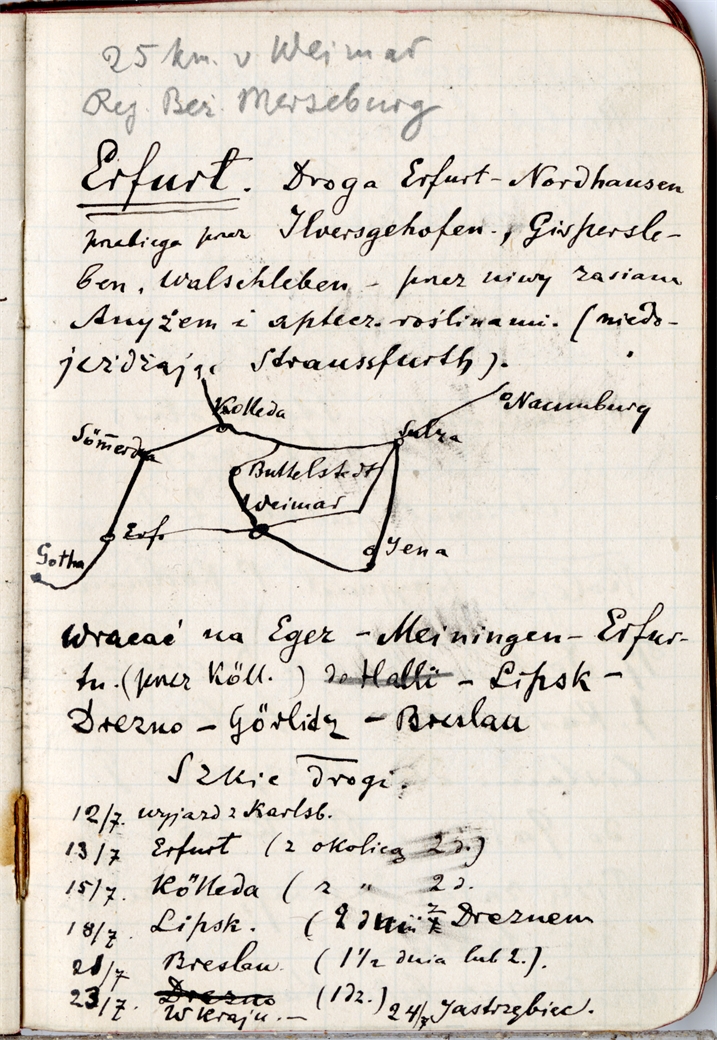 25 km. v Weimar
Rej. Bez. Merseburg
Erfurt. Droga Erfurt - Nordhausen
przebiega przez Ilversgehofen, Gispersle-
ben, Walschleben - przez niwy zasiane
Anyżem i aptecz. roślinami. (niedo-
jeżdżając Straussfurth).
Kölleda
Naumburg
Sömmerda
Sulza
Buttelstedt
Weimar
Erf.
Jena
Gotha
wracać na Eger - Meiningen - Erfur-
tu. (przez Köll.) do Halli - Lipsk -
Drezno - Görlitz - Breslau
Szkic drogi.
12/7. wyjazd z Karlsb.
13/7 Erfurt (z okolicą 2 d.)
15/7. Kölleda (z " 2 d.
18/7. Lipsk. (2 dni z Dreznem
21/7 Breslau. (1 1/2 dnia lub 2.).
23/7. Drezno (1 dz.) 24/7 Jastrzębiec.
W kraju. -